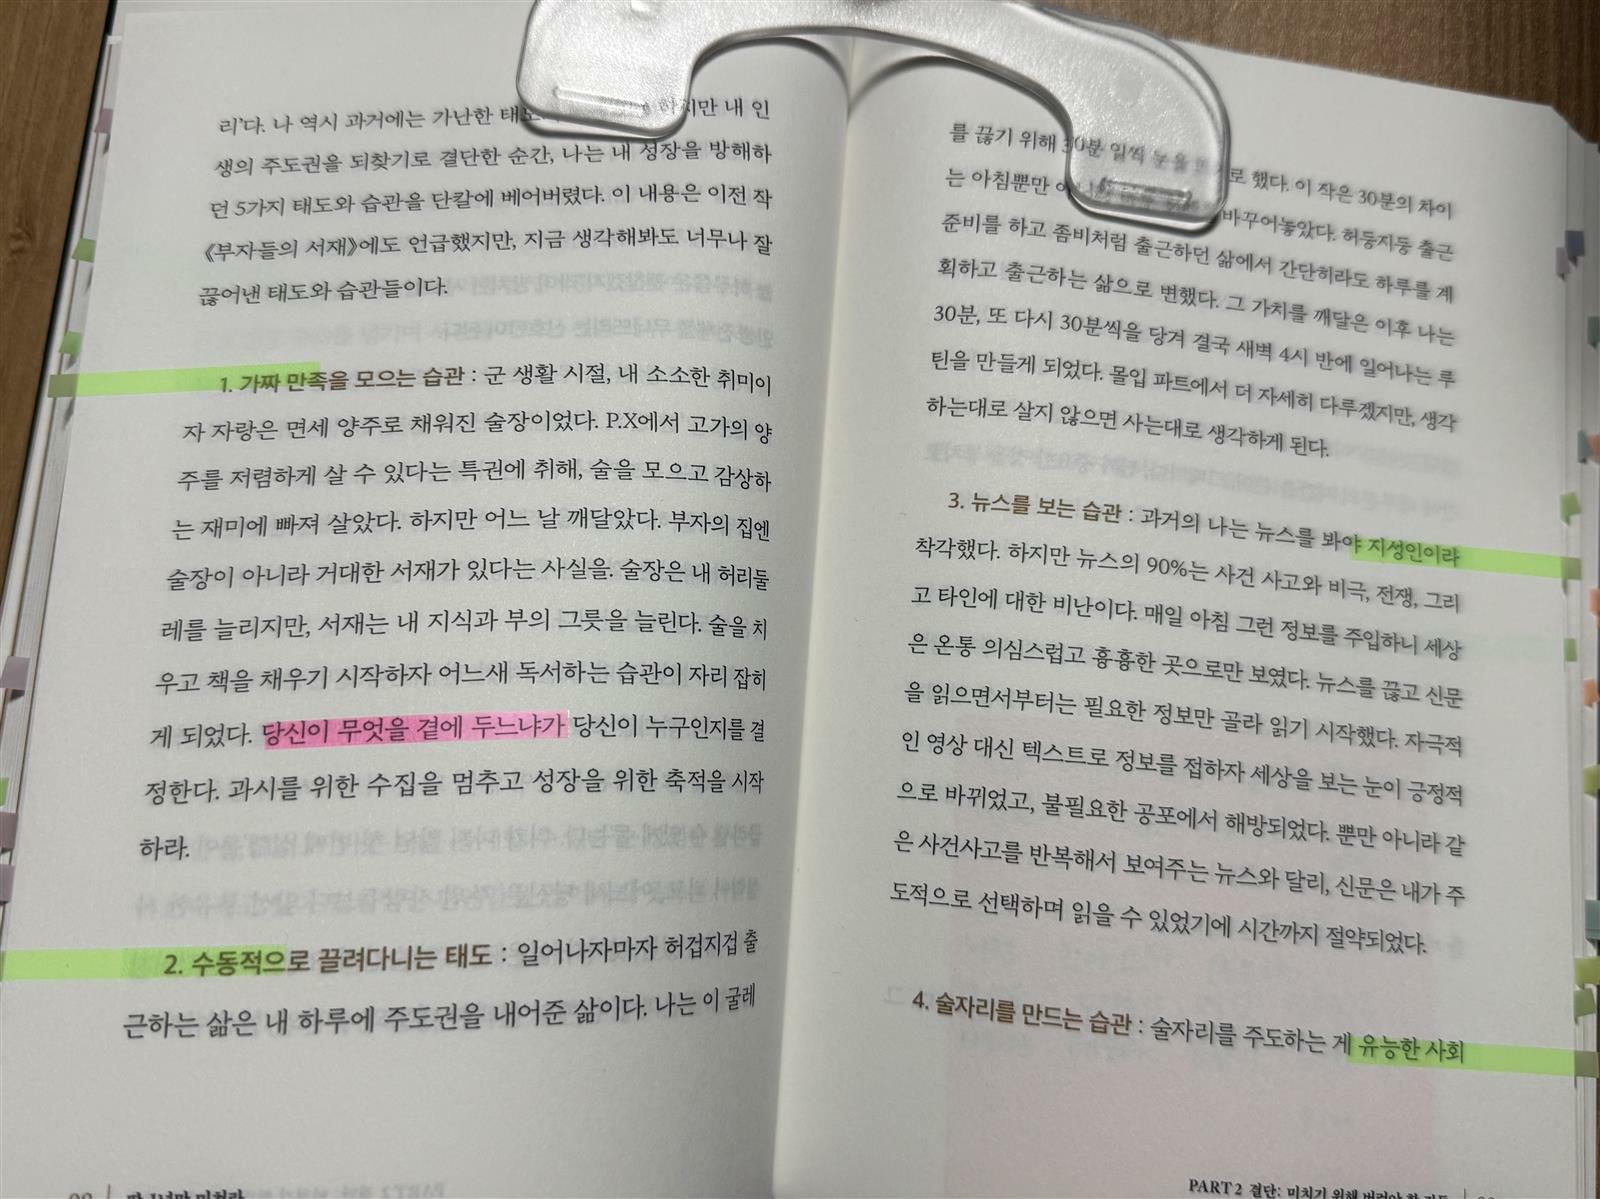 리'다. 나 역시 과거에는 가난한 하지만 내 인
생의 주도권을 되찾기로 결단한 순간, 나는 내 성장을 방해하
던 5가지 태도와 습관을 단칼에 베어버렸다. 이 내용은 이전 작
《부자들의 서재》에도 언급했지만, 지금 생각해봐도 너무나 잘
끊어낸 태도와 습관들이다.
1. 가짜 만족을 모으는 습관 : 군 생활 시절, 내 소소한 취미이
자 자랑은 면세 양주로 채워진 술장이었다. P.X에서 고가의 양
주를 저렴하게 살 수 있다는 특권에 취해, 술을 모으고 감상하
는 재미에 빠져 살았다. 하지만 어느 날 깨달았다. 부자의 집엔
술장이 아니라 거대한 서재가 있다는 사실을. 술장은 내 허리둘
레를 늘리지만, 서재는 내 지식과 부의 그릇을 늘린다. 술을 치
우고 책을 채우기 시작하자 어느새 독서하는 습관이 자리 잡히
게 되었다. 당신이 무엇을 곁에 두느냐가 당신이 누구인지를 결
정한다. 과시를 위한 수집을 멈추고 성장을 위한 축적을 시작
하라.
2. 수동적으로 끌려다니는 태도 : 일어나자마자 허겁지겁 출
근하는 삶은 내 하루에 주도권을 내어준 삶이다. 나는 이 굴레
를 끊기 위해 30분 일찍 눈을 했다. 이 작은 30분의 차이
는 아침뿐만 바꾸어놓았다. 허둥지둥 출근
준비를 하고 좀비처럼 출근하던 삶에서 간단히라도 하루를 계
획하고 출근하는 삶으로 변했다. 그 가치를 깨달은 이후 나는
30분, 또 다시 30분씩을 당겨 결국 새벽 4시 반에 일어나는 루
틴을 만들게 되었다. 몰입 파트에서 더 자세히 다루겠지만, 생각
하는대로 살지 않으면 사는대로 생각하게 된다.
3. 뉴스를 보는 습관 : 과거의 나는 뉴스를 봐야 지성인이라
착각했다. 하지만 뉴스의 90%는 사건 사고와 비극, 전쟁, 그리
고 타인에 대한 비난이다. 매일 아침 그런 정보를 주입하니 세상
은 온통 의심스럽고 흉흉한 곳으로만 보였다. 뉴스를 끊고 신문
을 읽으면서부터는 필요한 정보만 골라 읽기 시작했다. 자극적
인 영상 대신 텍스트로 정보를 접하자 세상을 보는 눈이 긍정적
으로 바뀌었고, 불필요한 공포에서 해방되었다. 뿐만 아니라 같
은 사건사고를 반복해서 보여주는 뉴스와 달리, 신문은 내가 주
도적으로 선택하며 읽을 수 있었기에 시간까지 절약되었다.
4. 술자리를 만드는 습관 : 술자리를 주도하는 게 유능한 사회
딱 1년만 미쳐라
PART 2 결단: 미치기 위해 버려야 할